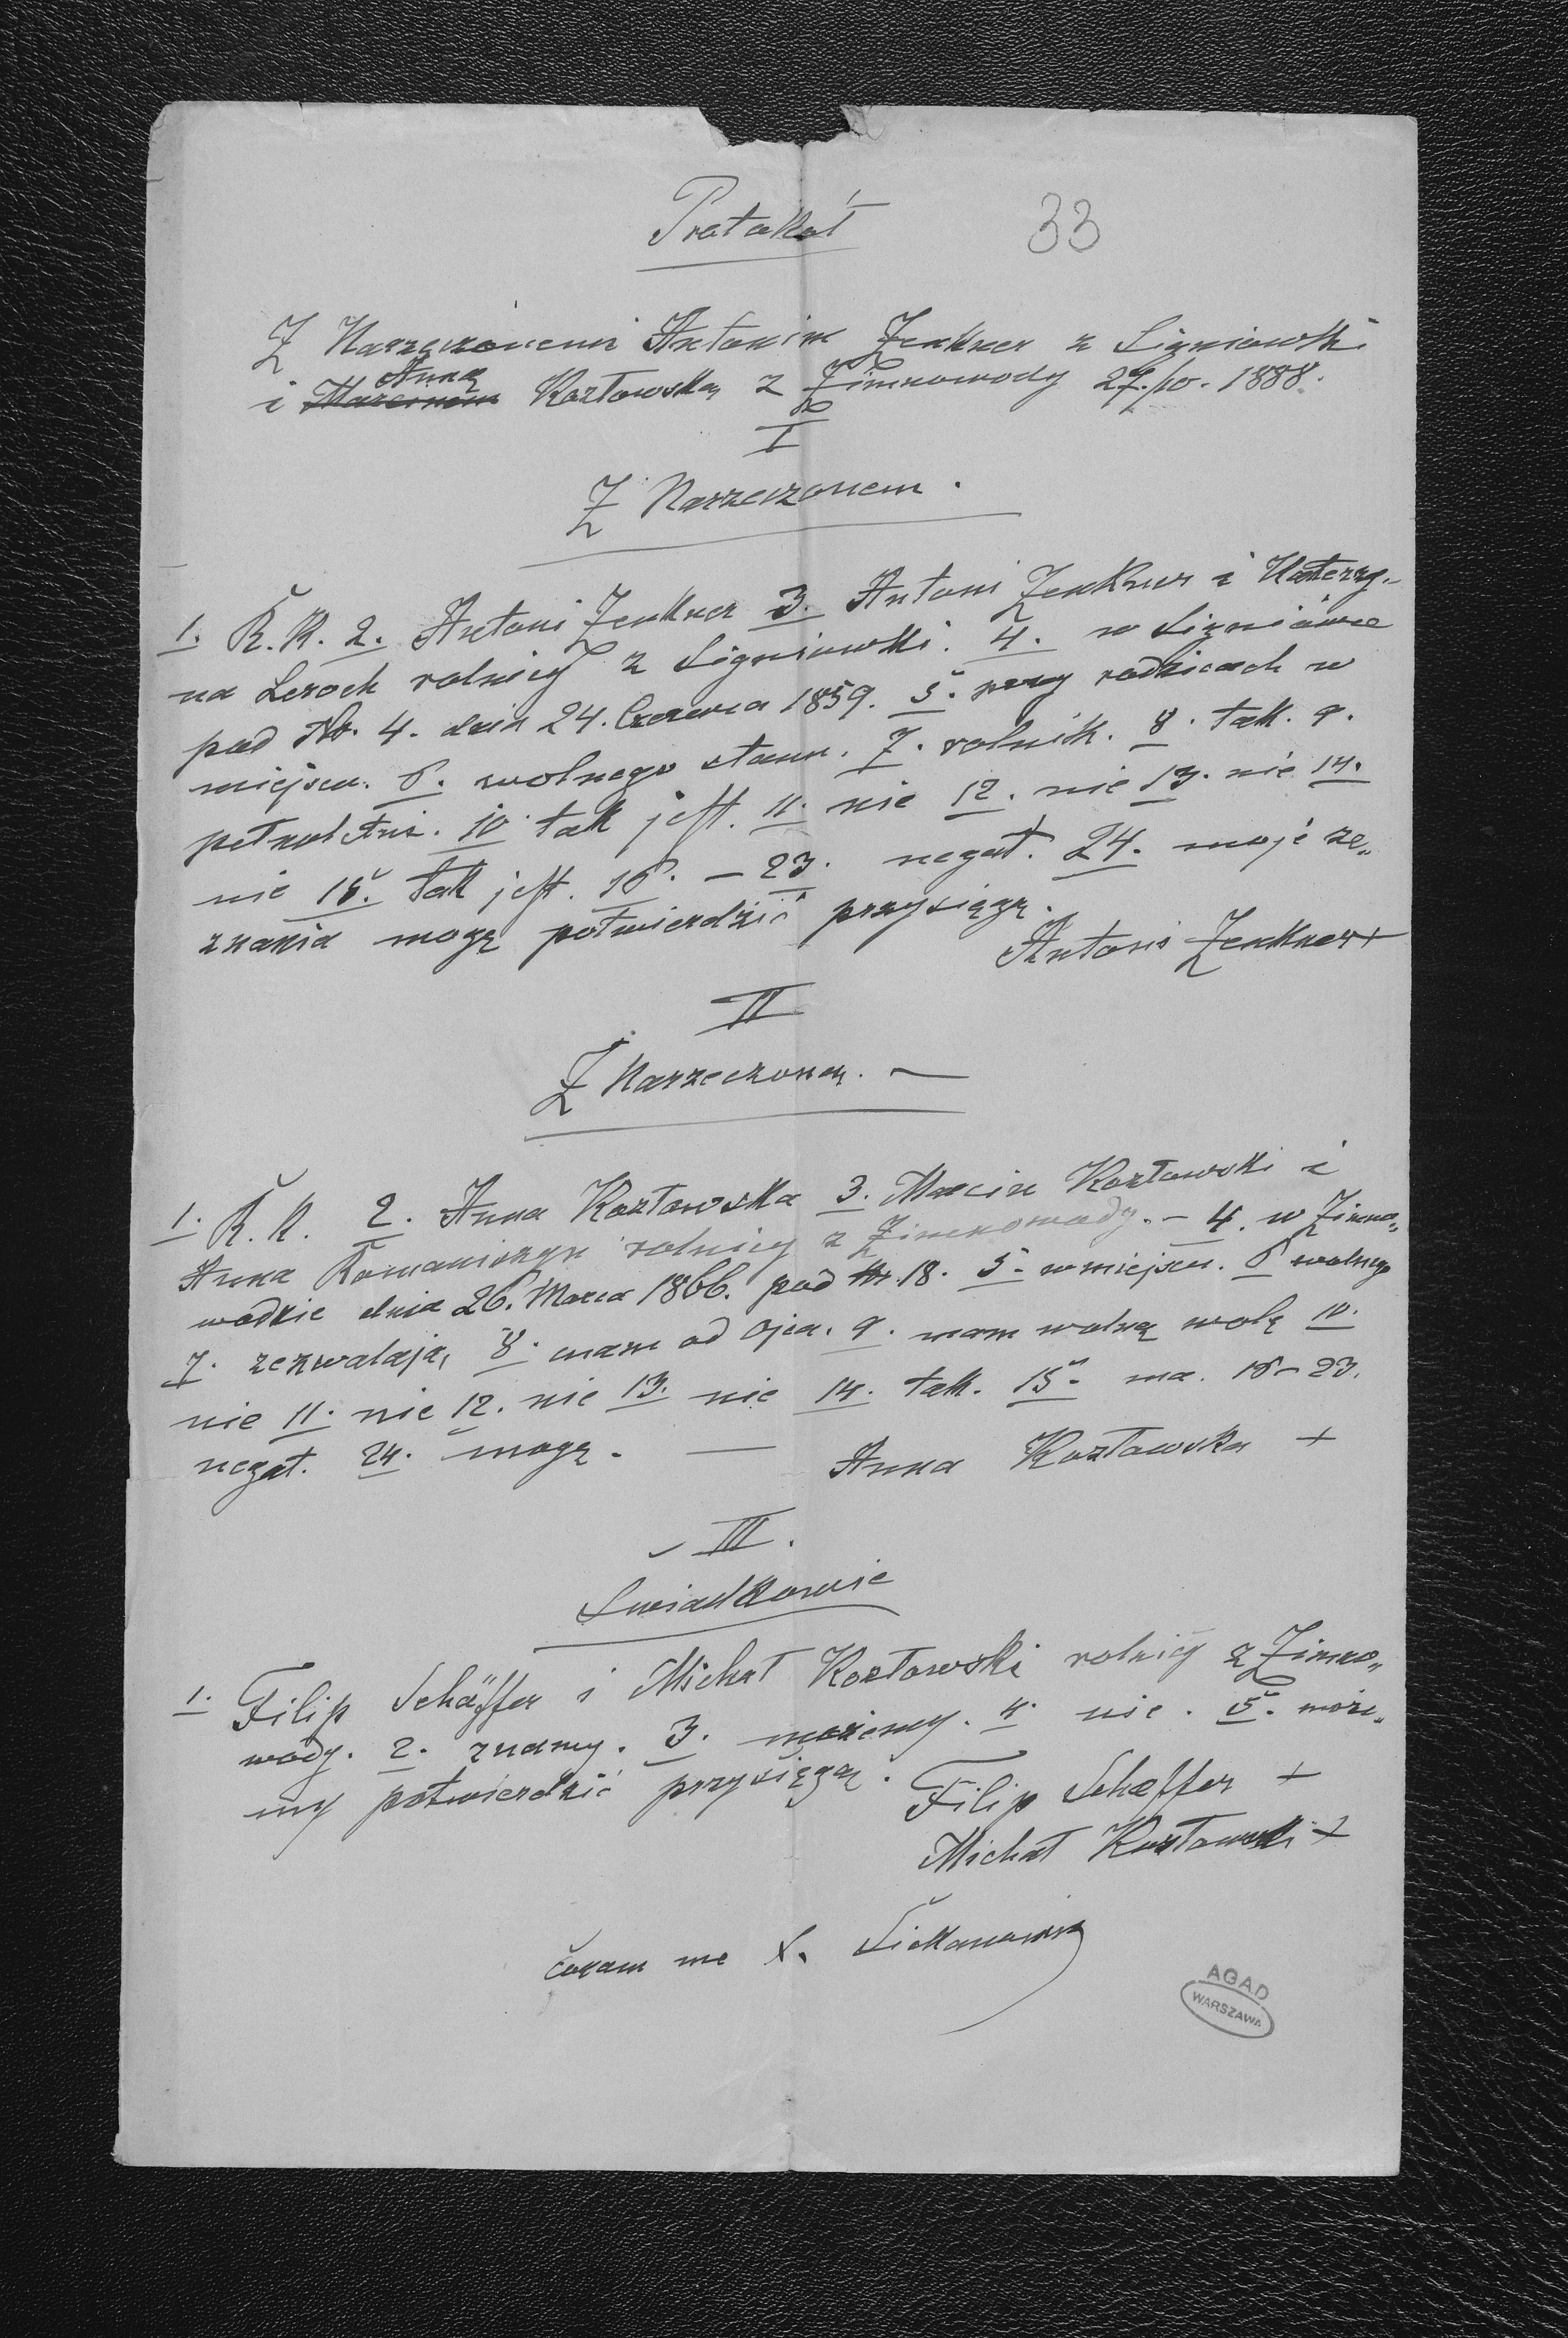 Protokół
33
Z Narzeczonemi Antonim Zenkner z Signiowki
i Marcinem Anną Kozłowską z Zimnowody 27./10. 1888.
I
Z Narzeczonem.
1. R. K. 2. Antoni Zenkner 3. Antoni Zenkner i Katarzy-
na Leroch rolnicy z Signiowki. 4. w Signiówce
pod Nr. 4. dnia 24. Czerwca 1859. 5. przy rodzicach w
miejscu. 6. wolnego stanu. 7. rolnik. 8. tak. 9.
pełnoletni. 10 tak jest. 11. nie 12. nie 13. nie 14.
nie 15. tak jest. 16. – 23. negat. 24. moje ze„
znania mogę potwierdzić przysięgą.
Antoni Zenkner +
II
Z Narzeczoną. —
1. R. K. 2. Anna Kozłowska 3. Marcin Kozłowski i
Anna Romaniszyn rolnicy z Zimnowody. – 4. w Zimno„
wodzie dnia 26. Marca 1866. pod Nr. 18. 5. w miejscu. 6 wolnego
7. zezwalają, 8. mam od Ojca. 9. mam wolną wolę 10.
nie 11. nie 12. nie 13. nie 14. tak. 15. ma. 16–23.
negat. 24. mogę. —
Anna Kozłowska +
III.
Swiadkowie
1. Filip Schäffer i Michał Kozłowski rolnicy z Zimno„
wody. 2. znamy. 3. możemy. 4. nie. 5. może„
my potwierdzić przysięgą.
Filip Schæffer +
Michał Kozłowski +
coram me X.
AGAD
WARSZAWA